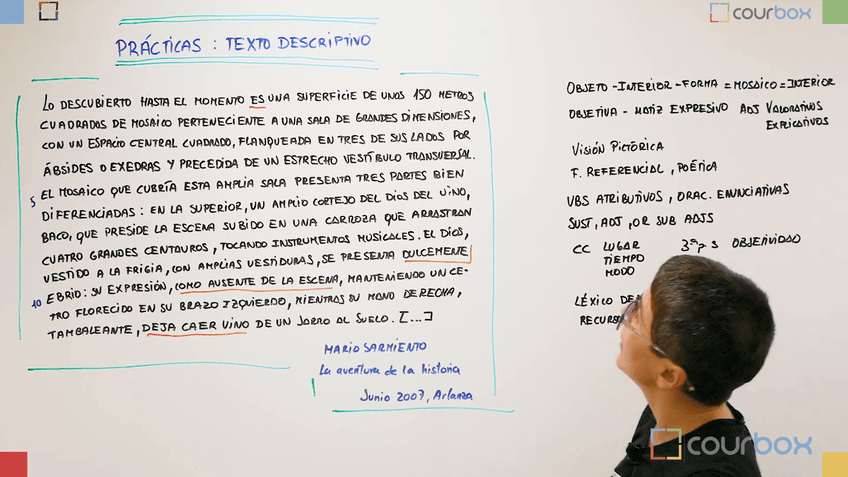 courbox
PRÁCTICAS : TEXTO DESCRIPTIVO
LO DESCUBIERTO HASTA EL MOMENTO ES UNA SUPERFICIE DE UNOS 150 METROS
CUADRADOS DE MOSAICO PERTENECIENTE A UNA SALA DE GRANDES DIMENSIONES,
CON UN ESPACIO CENTRAL CUADRADO, FLANQUEADA EN TRES DE SUS LADOS POR
ÁBSIDES O EXEDRAS Y PRECEDIDA DE UN ESTRECHO VESTÍBULO TRANSVERSAL.
5 EL MOSAICO QUE CUBRÍA ESTA AMPLIA SALA PRESENTA TRES PARTES BIEN
DIFERENCIADAS : EN LA SUPERIOR, UN AMPLIO CORTEJO DEL DIOS DEL VINO,
BACO, QUE PRESIDE LA ESCENA SUBIDO EN UNA CARROZA QUE ARRASTRAN
CUATRO GRANDES CENTAUROS, TOCANDO INSTRUMENTOS MUSICALES. EL DIOS,
VESTIDO A LA FRIGIA, CON AMPLIAS VESTIDURAS, SE PRESENTA DULCEMENTE
10 EBRIO: SU EXPRESIÓN, COMO AUSENTE DE LA ESCENA, MANTENIENDO UN CE-
TRO FLORECIDO EN SU BRAZO IZQUIERDO, MIENTRAS SU MANO DERECHA,
TAMBALEANTE, DEJA CAER VINO DE UN JARRO AL SUELO. [...]
MARIO SARMIENTO
La aventura de la historia
Junio 2007, Arlanza
OBJETO - INTERIOR - FORMA = MOSAICO = INTERIOR
OBJETIVA - MATIZ EXPRESIVO ADJ VALORATIVOS
EXPLICATIVOS
VISIÓN PICTÓRICA
F. REFERENCIAL, POÉTICA
VBS ATRIBUTIVOS, ORAC. ENUNCIATIVAS
SUST, ADJ, OR SUB ADJS
CC LUGAR 3ª p s OBJETIVIDAD
TIEMPO
MODO
LÉXICO
courbox